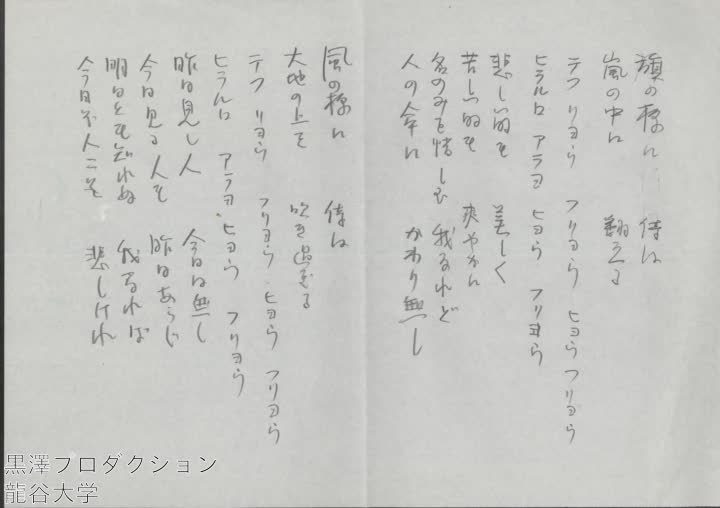 旗の様に 侍は
嵐の中に 翻える
テフ リヨラ フリヨラ ヒヨラ フリヨラ
ヒラルロ アラヨ ヒヨラ フリヨラ
悲しい的を 美しく
苦しい的を 爽やかに
名のみを惜しむ 我なれど
人の命に かわり無し
風の様に 侍は
大地の上を 吹き過ぎる
テフ リヨラ フリヨラ ヒヨラ フリヨラ
ヒラルロ アラヨ ヒヨラ フリヨラ
昨日見し人 今日は無し
今日見る人も 明日あらじ
明日とも知れぬ 我なれば
今日は人こそ 悲しけれ
黒澤プロダクション
龍谷大学